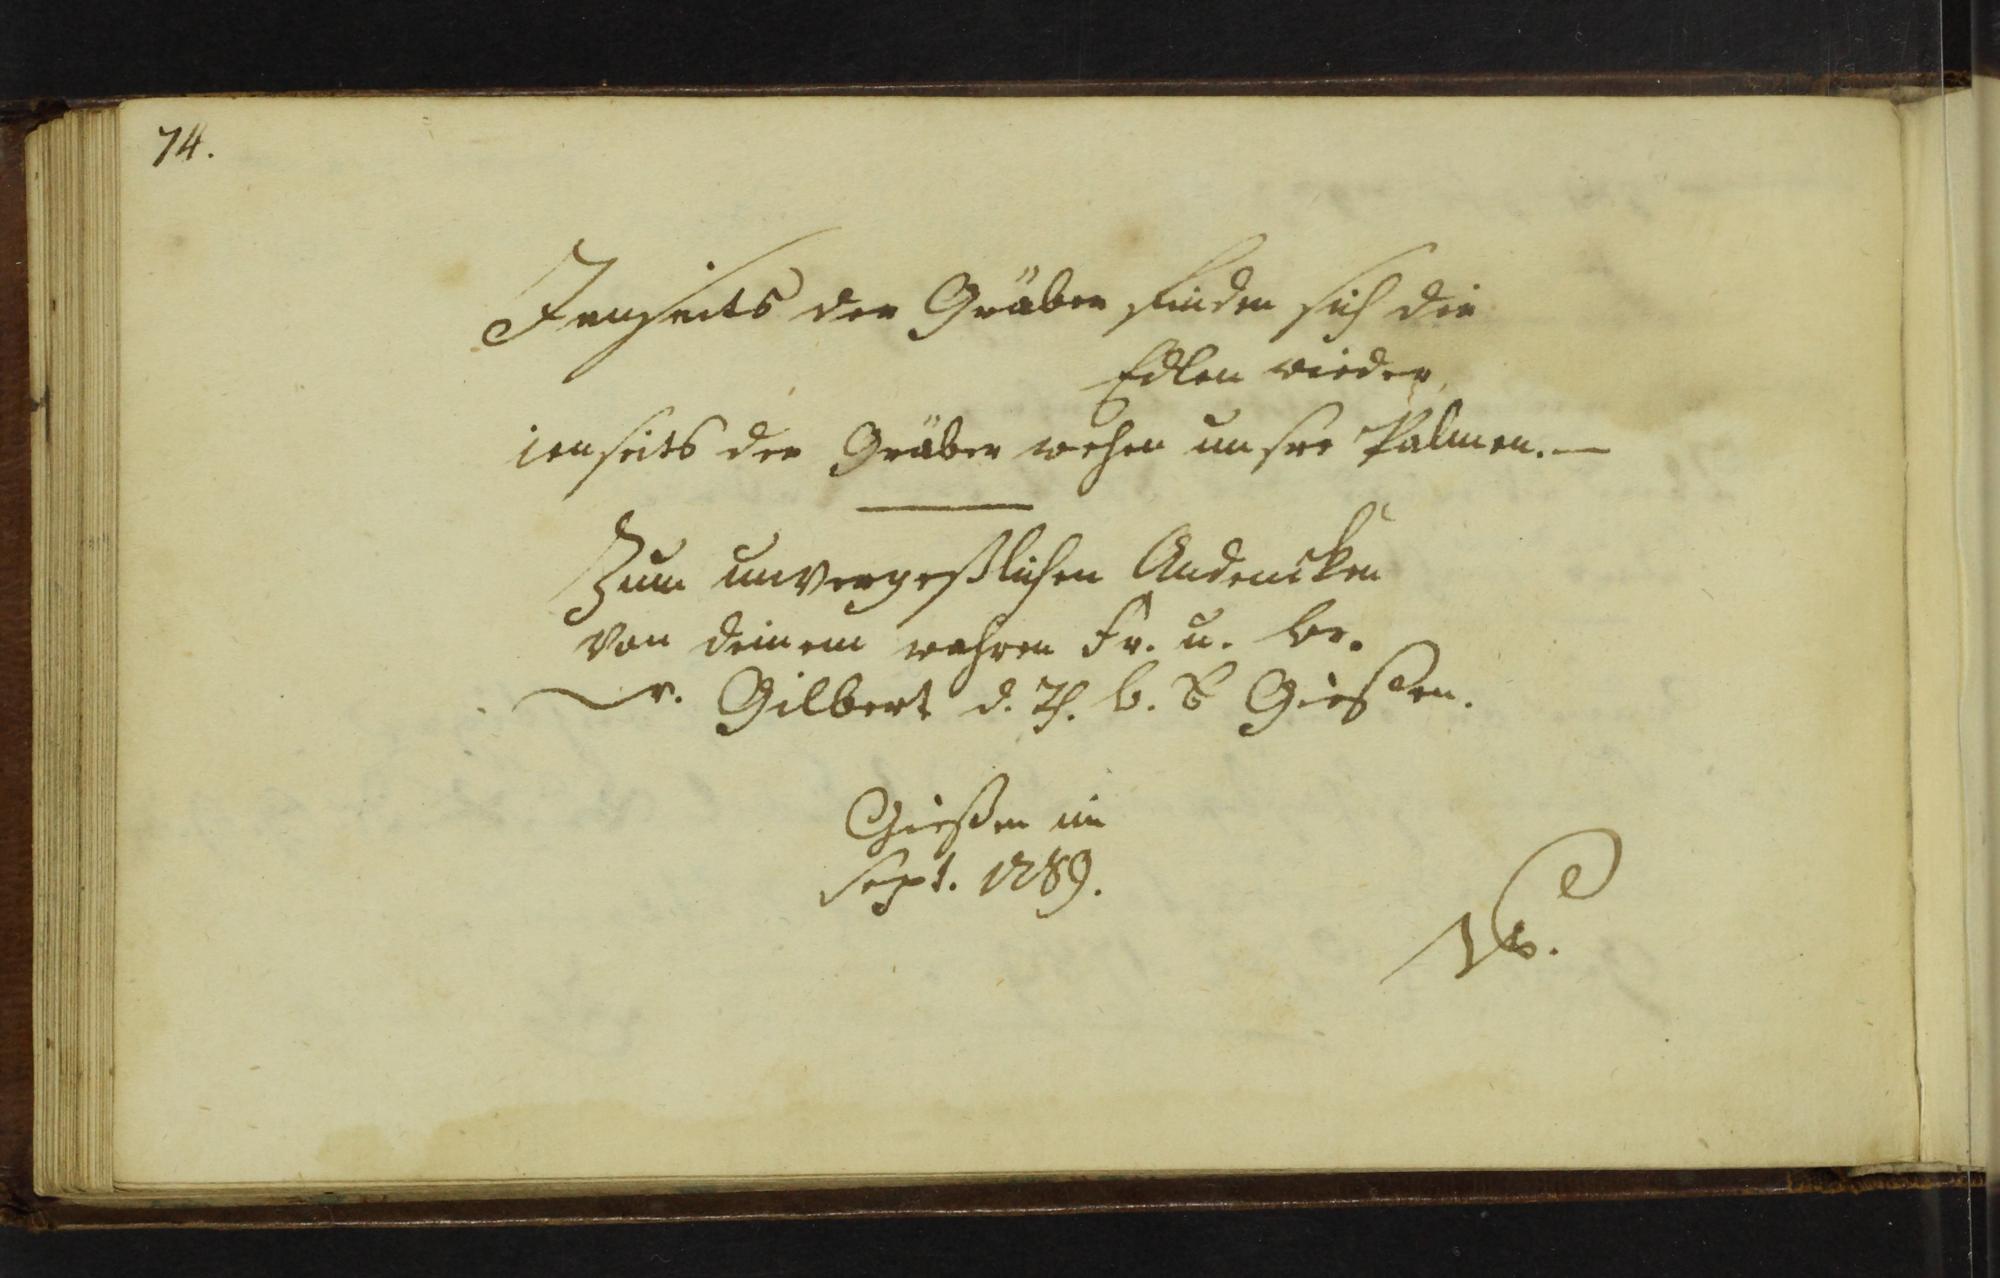 74.
Jenseits der Gräber finden sich die
Edlen wieder,
ienseits der Gräber wehen unsre Palmen. —
Zum unvergeßlichen Andencken
von deinem wahren Fr. u. Br.
v. Gilbert d. Th. B. Gießen.
Gießen im
Sept. 1789.